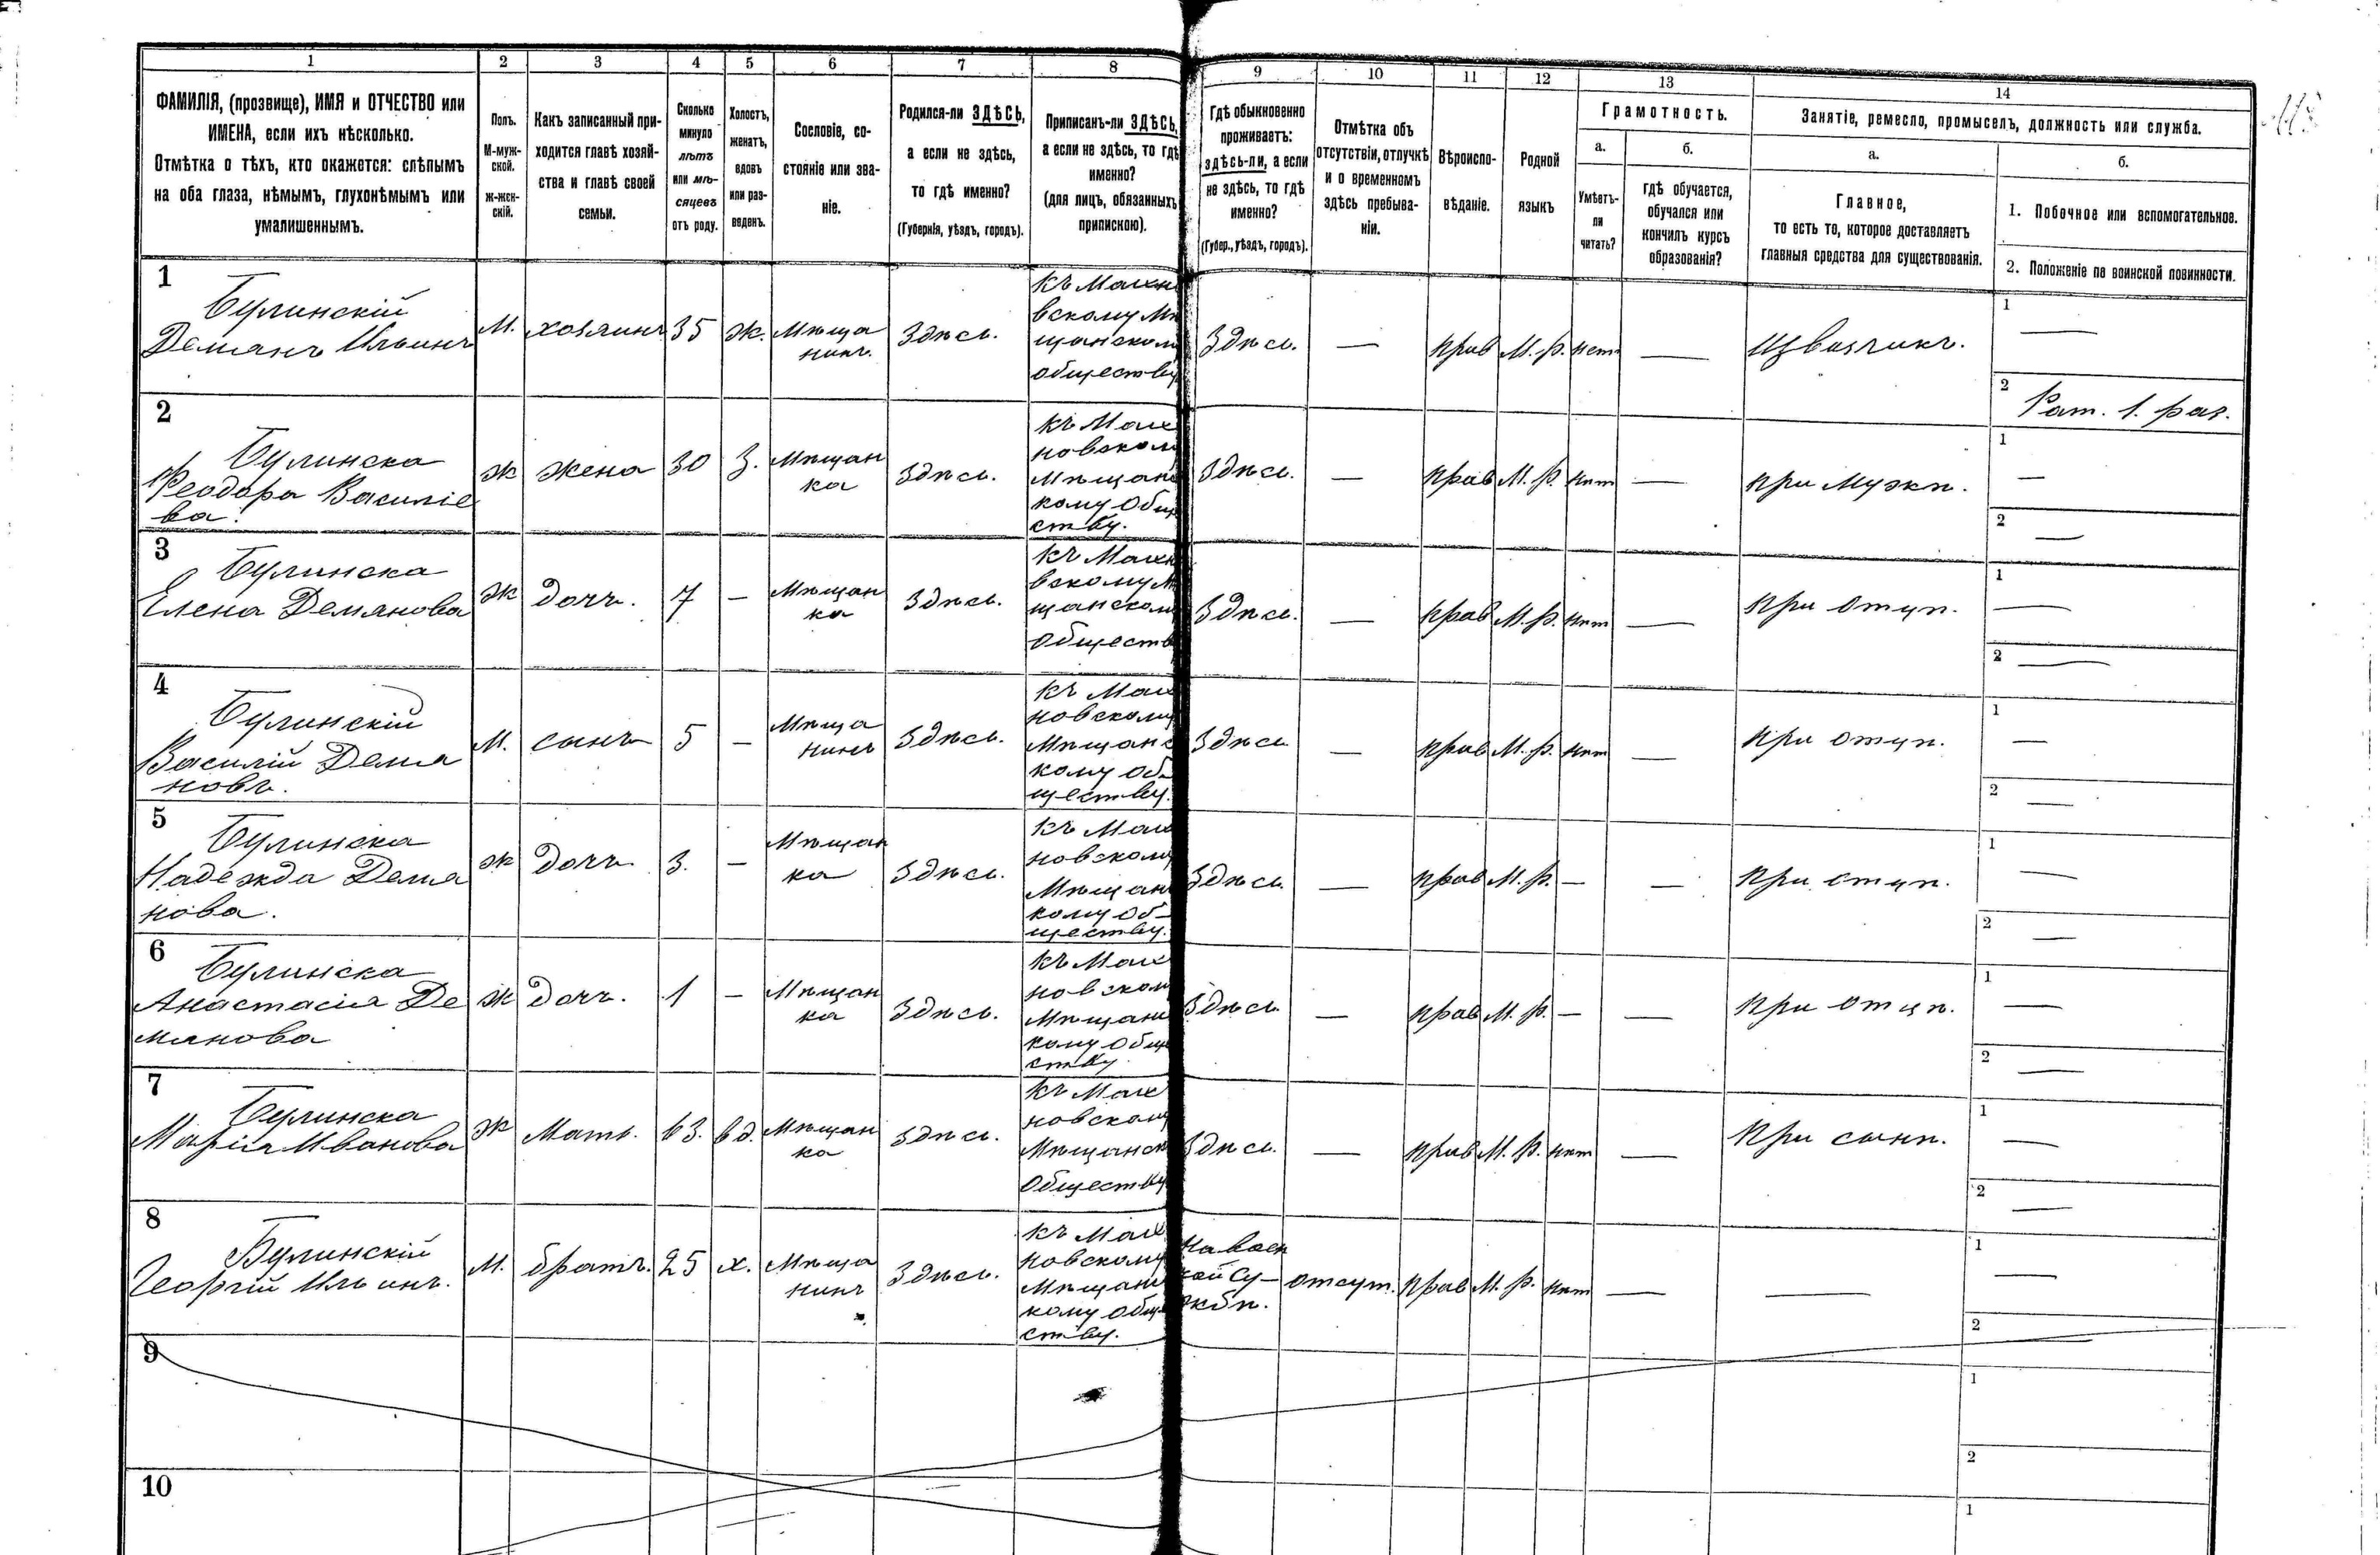 1 2 3 4 5 6 7 8 9 10 11 12 13 14
ФАМИЛІЯ, (прозвище), ИМЯ и ОТЧЕСТВО или
ИМЕНА, если ихъ нѣсколько.
Отмѣтка о тѣхъ, кто окажется: слѣпымъ
на оба глаза, нѣмымъ, глухонѣмымъ или
умалишеннымъ.
Полъ.
М-муж-
ской.
Ж-жен-
скій.
Какъ записанный при-
ходится главѣ хозяй-
ства и главѣ своей
семьи.
Сколько
минуло
лѣтъ
или мѣ-
сяцевъ
отъ роду.
Холостъ,
женатъ,
вдовъ
или раз-
веденъ.
Сословіе, со-
стояніе или зва-
ніе.
Родился-ли ЗДѢСЬ,
а если не здѣсь,
то гдѣ именно?
(Губернія, уѣздъ, городъ).
Приписанъ-ли ЗДѢСЬ,
а если не здѣсь, то гдѣ
именно?
(для лицъ, обязанныхъ
припискою).
Гдѣ обыкновенно
проживаетъ:
здѣсь-ли, а если
не здѣсь, то гдѣ
именно?
(Губер., уѣздъ, городъ).
Отмѣтка объ
отсутствіи, отлучкѣ
и о временномъ
здѣсь пребыва-
ніи.
Вѣроиспо-
вѣданіе.
Родной
языкъ
Грамотность.
а.
Умѣетъ-
ли
читать?
б.
гдѣ обучается,
обучался или
кончилъ курсъ
образованія?
Занятіе, ремесло, промыселъ, должность или служба.
а.
Главное,
то есть то, которое доставляетъ
главныя средства для существованія.
б.
1. Побочное или вспомогательное.
2. Положеніе по воинской повинности.
1
Булинскій
Демянъ Ильинъ
М. хозяинъ 35 ж. Мѣща
нинъ.
Здѣсь.
къ Махно
вскому Мѣ
щанскому
обществу
Здѣсь. — прав М. р. нет — Извозчикъ.
1 —
2 Рат. 1. раз.
2
Булинска
Феодора Василіе
ва.
ж жена 30 з. Мѣщан
ка
Здѣсь.
къ Мах
новском
Мѣщанс
кому Обще
ству.
Здѣсь. — прав М. р. нѣт — при Мужѣ.
1 —
2 —
3
Булинска
Елена Демянова
ж дочъ. 7 — Мѣщан
ка
Здѣсь.
къ Махно
вскому Мѣ
щанском
Обществ
Здѣсь. — прав М. р. нѣт — при отцѣ.
1 —
2 —
4
Булинскій
Василій Демя
новъ.
М. сынъ 5 — Мѣща
нинъ
Здѣсь.
къ Мах
новскому
Мѣщанс
кому об-
ществу.
Здѣсь — прав М. р. нѣт — при отцѣ.
1 —
2 —
5
Булинска
Надежда Демя
нова.
ж дочъ 3. — Мѣщан
ка
Здѣсь.
къ Мах
новскому
Мѣщанс
кому об-
ществу.
Здѣсь. — прав М. р. — — при отцѣ.
1 —
2 —
6
Булинска
Анастасія Де
мянова
ж дочъ. 1 — Мѣщан
ка
Здѣсь.
къ Мах
новском
Мѣщанс
кому Обще
ству
Здѣсь — прав М. р. — — при отцѣ.
1 —
2 —
7
Булинска
Марія Иванова
ж Мать. 63. вд. Мѣщан
ка
Здѣсь.
къ Мах
новскому
Мѣщанск
Обществу
Здѣсь. — прав М. р. нѣт — при сынѣ.
1 —
2 —
8
Булинскій
Георгій Ильинъ.
М. братъ. 25 х. Мѣща
нинъ
Здѣсь.
къ Мах
новскому
Мѣщанс
кому обще
ству.
На воен
ной Су-
жбѣ.
отсут. прав М. р. нѣт — —
1 —
2 —
9
1
2
10
1